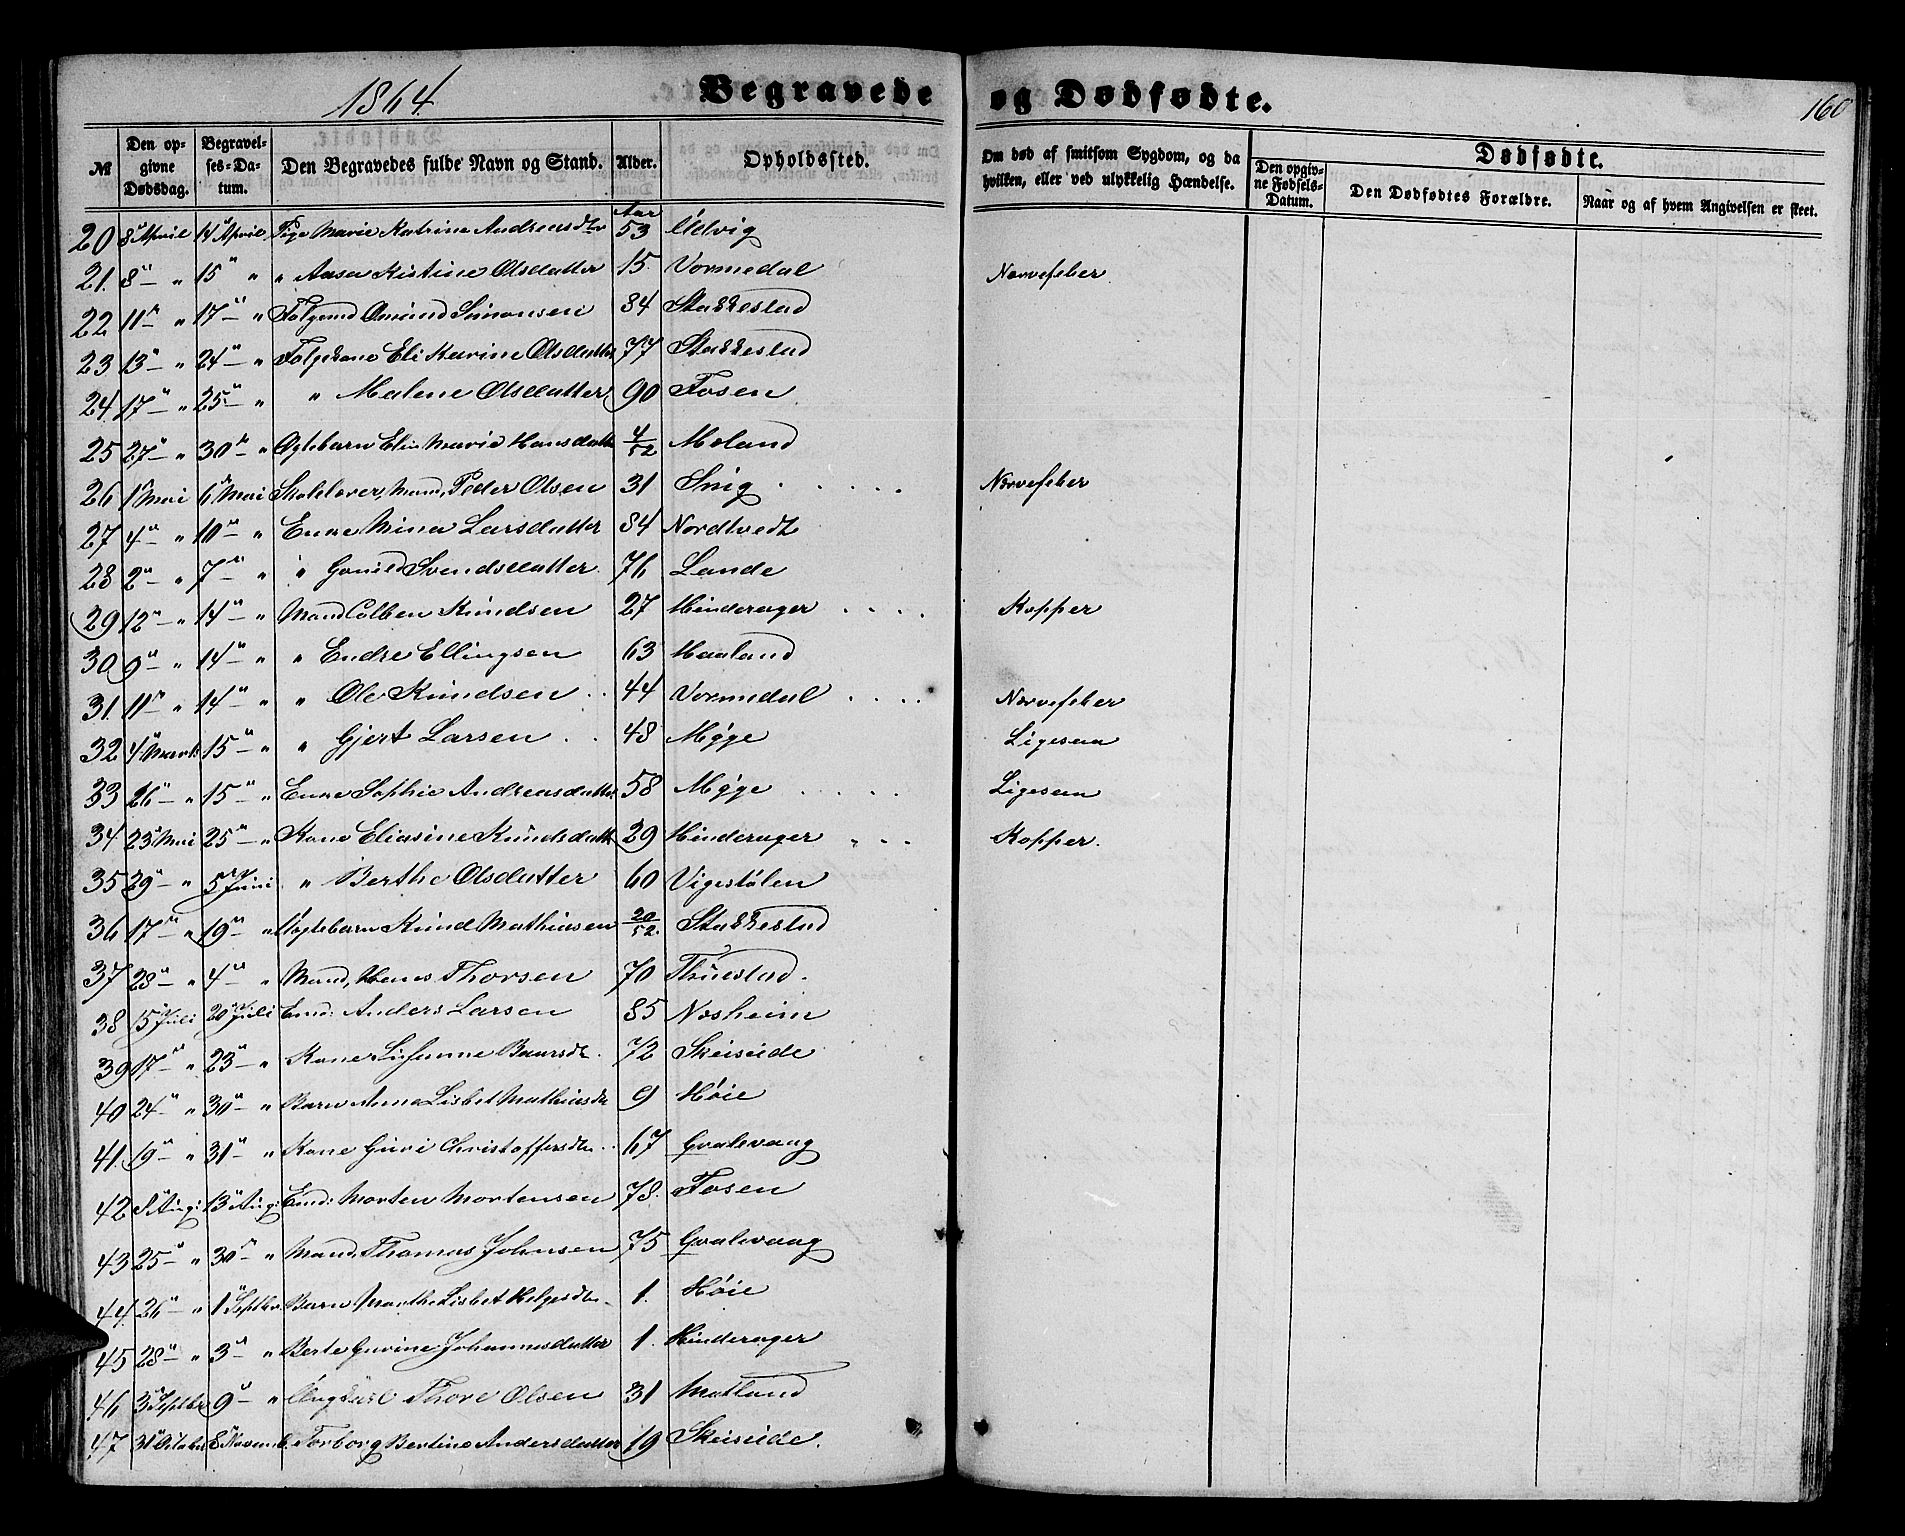 1864.
Begravede og Dødfødte.
160
№
Den opgivne Dødsdag.
Begravelses-Datum.
Den Begravedes fulde Navn og Stand.
Alder.
Opholdssted.
Om død af smitsom Sygdom, og da hvilken, eller ved ulykkelig Hændelse.
Dødfødte.
Den opgivne Fødsels-Datum.
Den Dødfødtes Forældre.
Naar og af hvem Angivelsen er skeet.
Aar
20 8 April 14 April Pige Marie Katrine Andreasdtr 53 Udvig
21. 8 " 15 " " Aasa Kistine Olsdatter 15. Vormedal Nervefeber
22 11 " 17 " Omund Simonsen 84 Stakkestad
23. 13 " 24 " Eli Karine Olsdatter 77 Stakkestad
24. 17 " 25 " " Malene Olsdatter 90 Fosen
25 27 " 30 " Marie Hansdatter 4/52 Moland
26 1 Mai 6 Mai Mand, Peder Olsen 31 Snig Nervefeber
27 4 " 10 " Enke Mina Larsdatter 84 Nordtvedt
28 2 " 7 " " Svendsdatter 76 Lande
29 12 " 14 " Mand Colben Knudsen 27 Hinderager Kopper
30 9 " 14 " " Endre Ellingsen 63 Haaland
31. 11 " 14 " " Ole Knudsen 44 Vormedal Nervefeber
32 4 Marts 15 " " Gjert Larsen 48 Møge Ligesaa
33 26 " 15 " Enke Sophie Andreasdatter 58 Møge Ligesaa
34 23 Mai 25 " Kone Eliasine Knudsdatter 29 Hinderager Kopper.
35 29 " 5 Juni " Berthe Olsdatter 60 Vigestølen
36 17 " 19 " Knud Mathiasen 20/52. Stakkestad
37 28 " 4 " Mand, Hans Thorsen 70 Thuestad.
38 15 Juli 20 Juli Enkd: Anders Larsen 85 Nosheim
39 17 " 23 " Kone 72 Skeiseide
40 24 " 30 " Barn Anna Lisbet Mathiasdtr 9 Høie
41. 19 " 31 " Kone Guri Christoffersdtr 67 Gvalevaag
42 Aug: 13 Aug: Enkd: Morten Mortensen 78. Fosen
43 25 " 30 " Mand, Thomas Johnsen 75 Gvalevaag
44. 26 " 1 Septbr Barn Marthe Lisbet Helgesdtr 1. Høie
45 28 " 3 " Berte Gurine Johannesdatter 1. Hinderager
46 3 Septbr 9 " Ungkarl Thore Olsen 31 Matland
47 31 Octobr 8 Novemb. Torborg Bertine Andersdatter 19 Skeiseide.